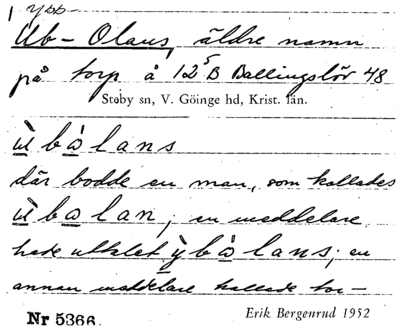 ypp-
Ub-Olans, äldre namn
på torp å 12⁵B Ballingslöv 48
Stoby sn, V. Göinge hd, Krist. län.
ù b å̀ l a n s
där bodde en man, som kallades
ù b a l a n; en meddelare
hade uttalet ỳ b å̀ l a n s; en
annan meddelare kallade tor-
Nr 5366.
Erik Bergenrud 1952